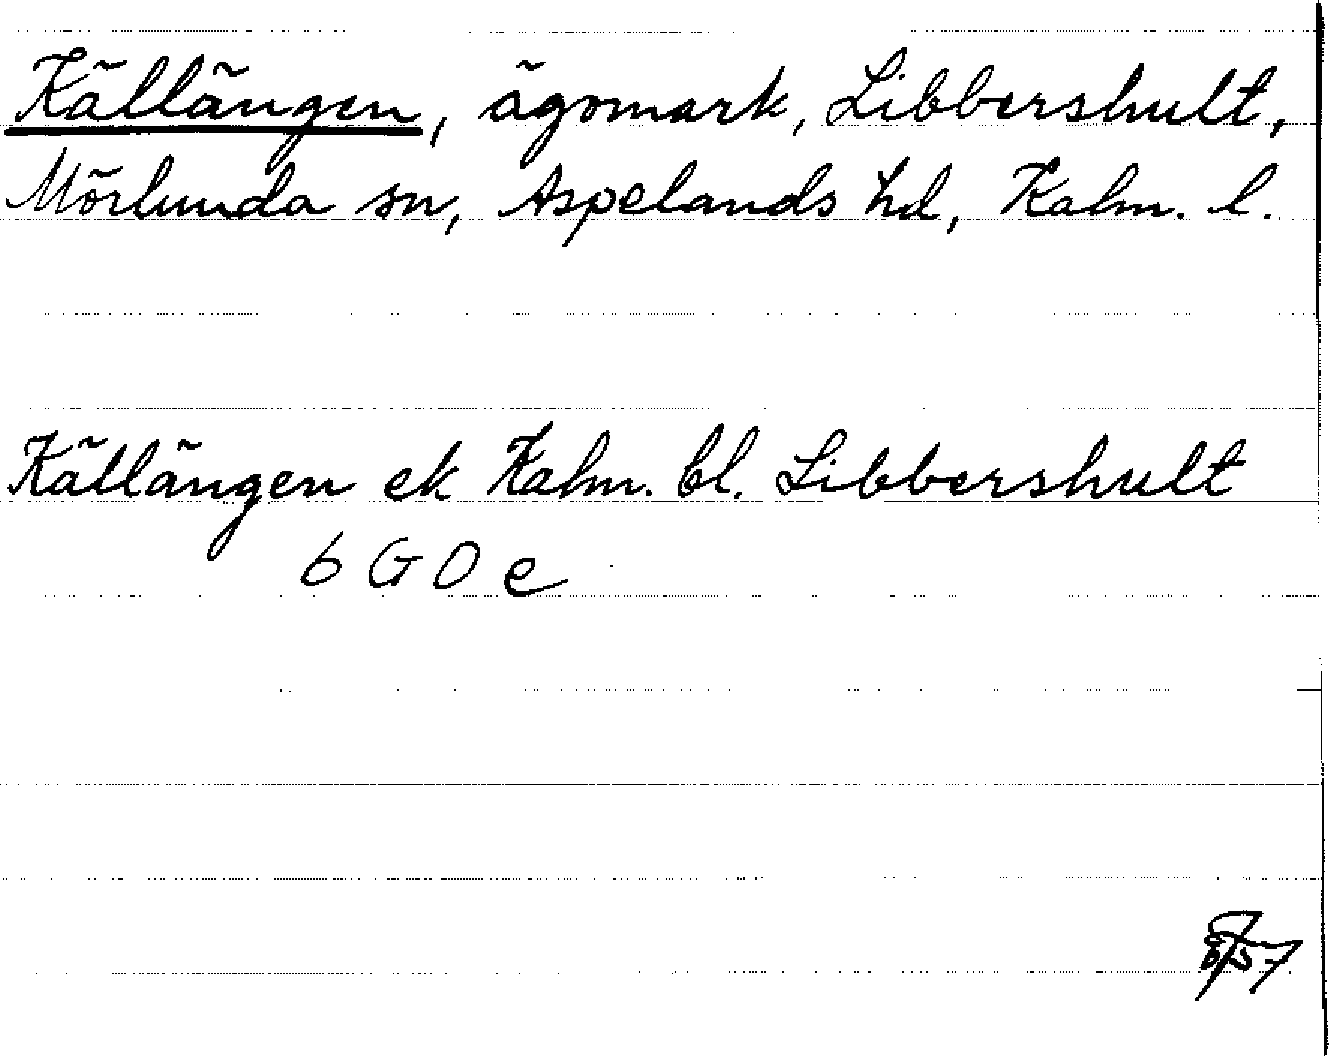 Källängen, ägomark, Libbershult,
Mörlunda sn, Aspelands hd, Kalm. l.
Källängen ek Kalm. bl. Libbershult
6 G 0 e